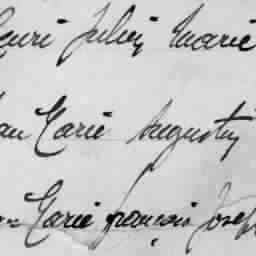 Henri Julien Marie
Jean Marie Augustin
Marie françois Joseph